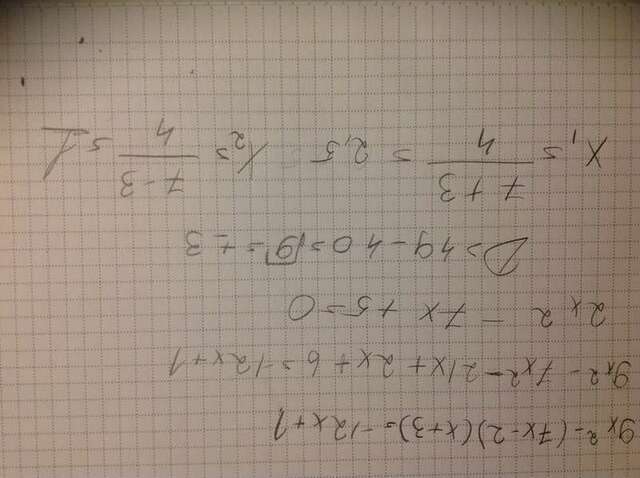 9x²-(7x-2)(x+3)=-12x+1
9x²-7x²-21x+2x+6=-12x+1
2x² - 7x + 5 = 0
D=49-40=√9=±3
x₁ = (7+3)/4 = 2,5 x₂ = (7-3)/4 = 1